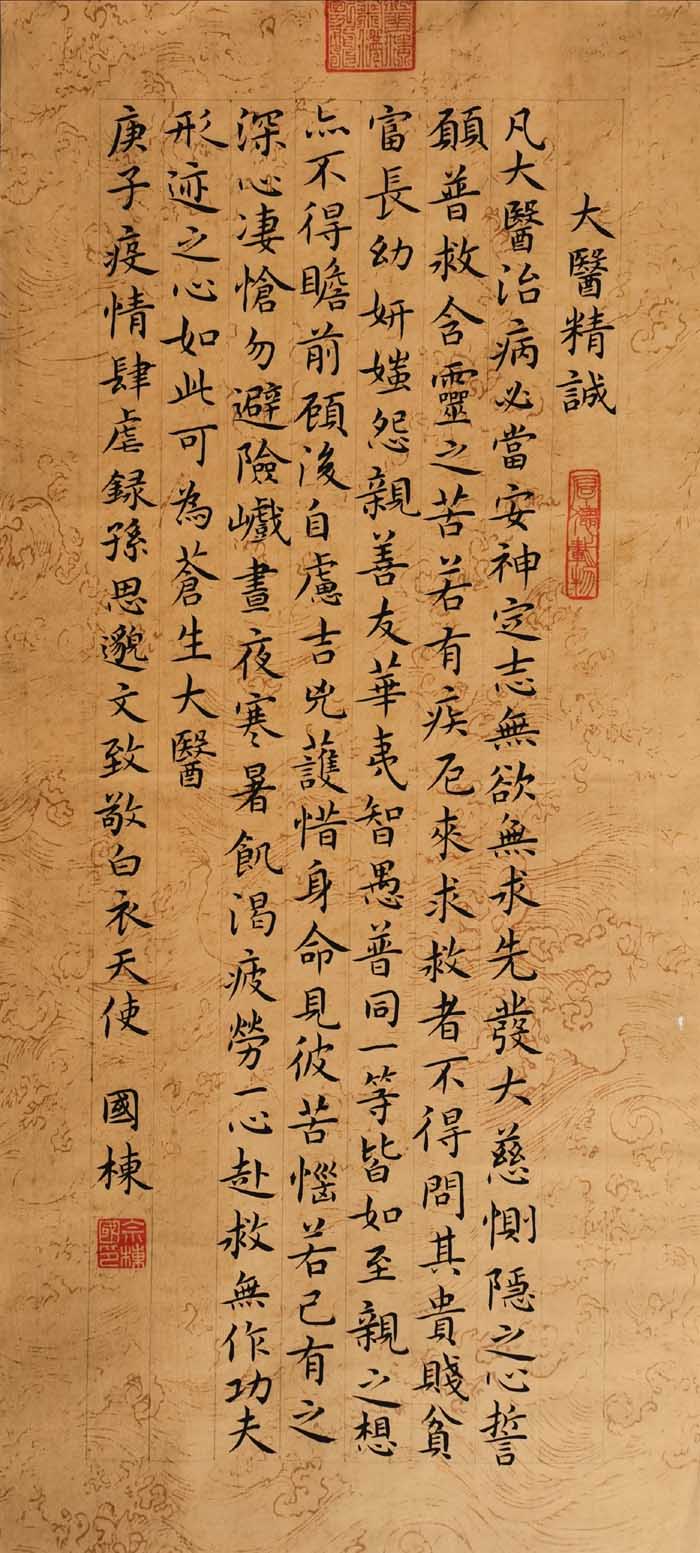 大醫精誠
厚德載物
凡大醫治病必當安神定志無欲無求先發大慈惻隱之心誓
願普救含靈之苦若有疾厄來求救者不得問其貴賤貧
富長幼妍媸怨親善友華夷智愚普同一等皆如至親之想
亦不得瞻前顧後自慮吉兇護惜身命見彼苦惱若己有之
深心凄愴勿避險巇晝夜寒暑飢渴疲勞一心赴救無作功夫
形迹之心如此可為蒼生大醫
庚子疫情肆虐録孫思邈文致敬白衣天使 國棟